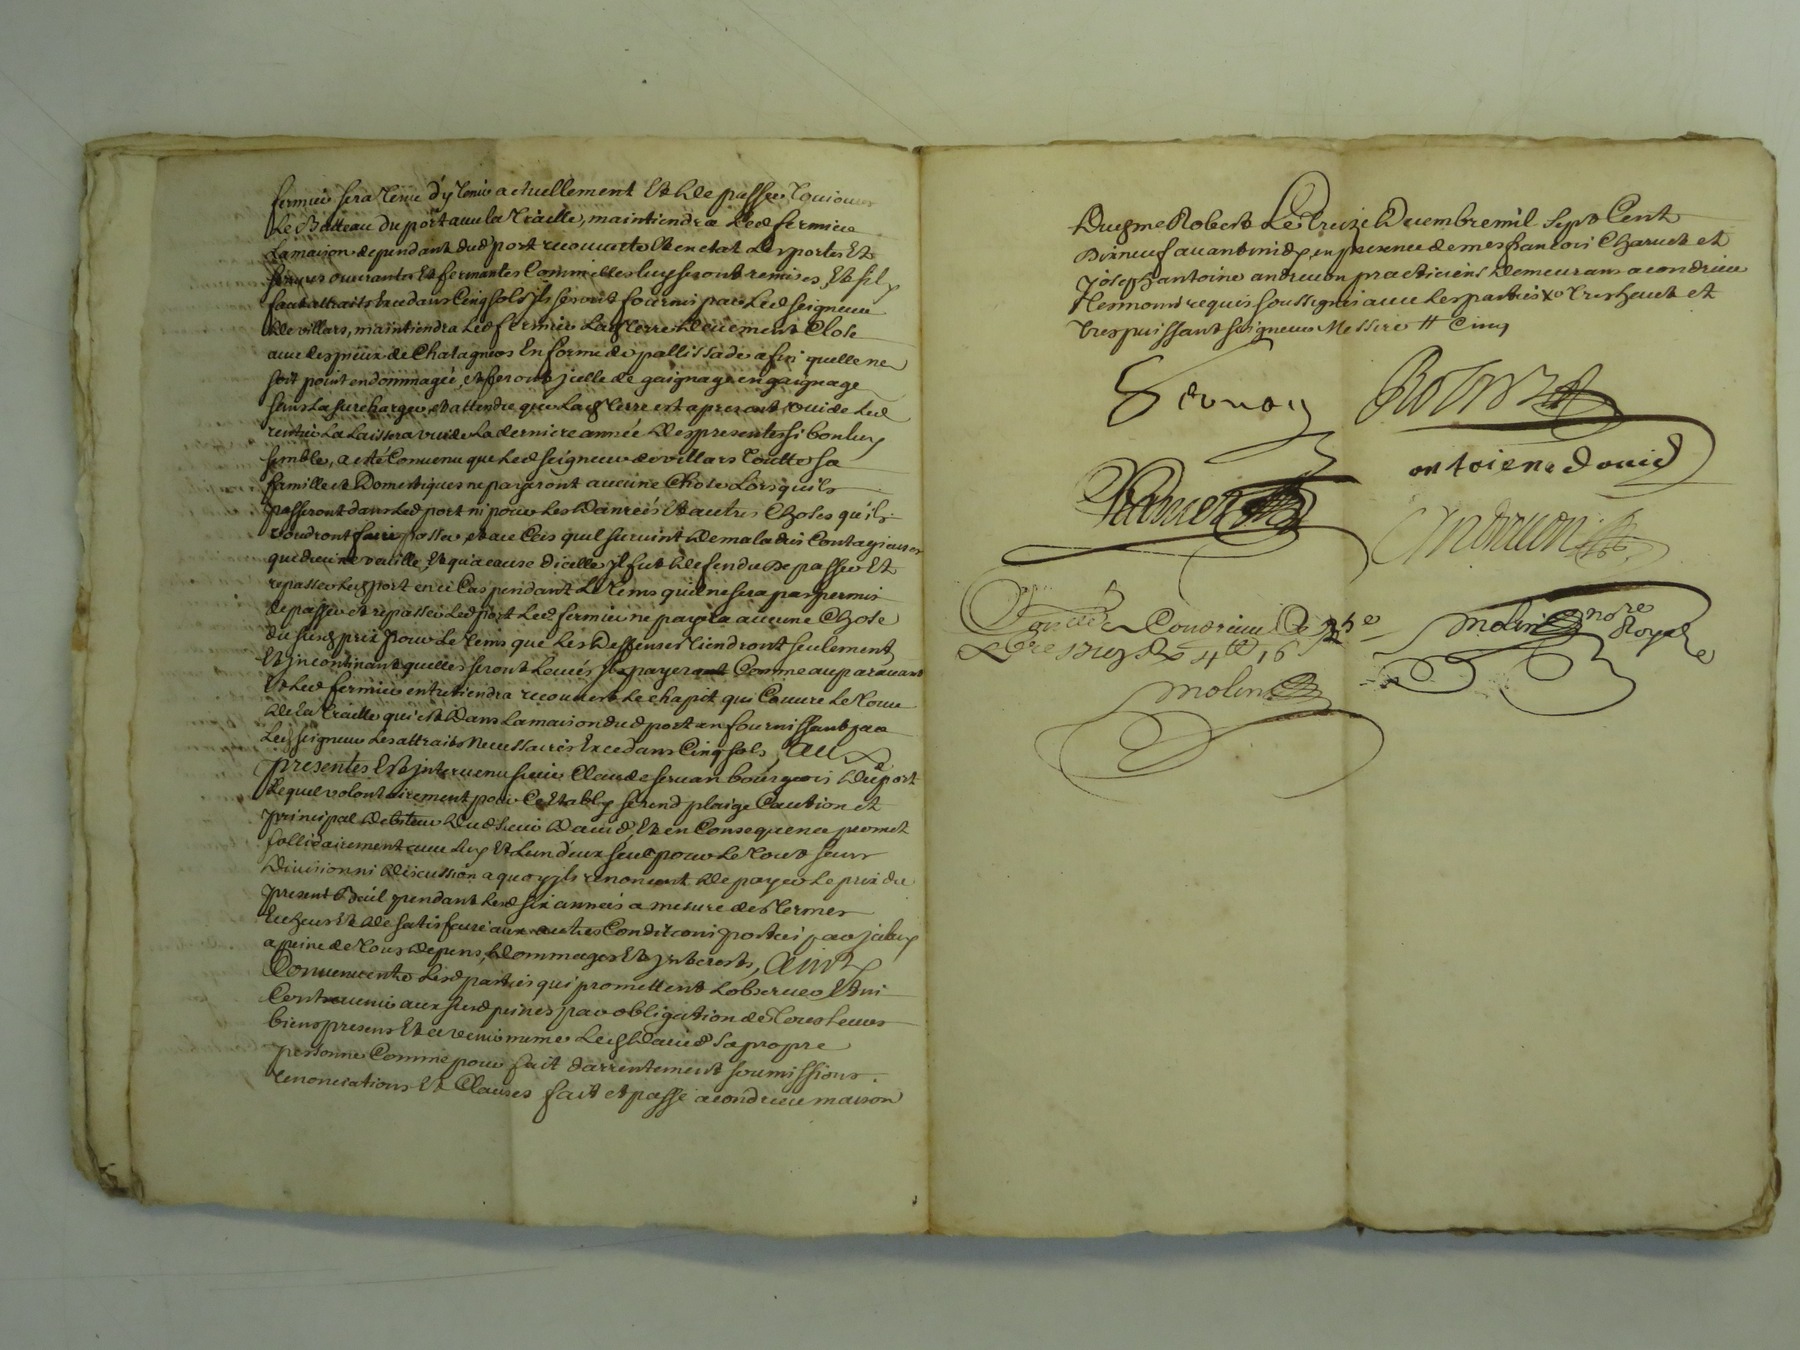 fermier sera tenu d'y tenir actuellement Et de passer toujours
Le Batteau du port avec la traille, maintiendra Led fermier
La maison dependant dud port recouverte Et en etat Les portes Et
ouvrantes Et fermantes Comme elles luy seront remises, Et sil y
faut attraits excedans Cinq sols ils seront fournis par Led seigneur
de villars, maintiendra Led fermier Lad terre deuement Close
avec des pieux de Chatagners En forme de pallissade afin quelle ne
soit point endommagée, et feront jcelle de gaignage en gaignage
sans La surcharger, et attendu que Lad terre est apresent vuide Led
rentier La Laissera vuide La derniere année des presentes si bon luy
semble, a esté Convenu que Led seigneur de villars toutte sa
famille et Domestiques ne payeront aucune Chose Lors quils
passeront dans Led port ni pour Les Danrées Et autres Choses quils
voudront faire passer et au Cas quil survint de maladies Contagieuses
que dieu ne veuille Et qua cause dicelle jl fut deffendu de passer Et
repasser Led port en ce Cas pendant Le tems quil ne sera pas permis
de passer et repasser Led port Led fermier ne payera aucune Chose
du susd prix pour Le tems que Les deffenses tiendront seulement
Et jncontinant quelles seront Levées jl payera Comme auparavant
Et Led fermier entretiendra recouvert Le chapit qui Couvre Le tour
de La traille qui est Dans La maison dud port en fournissant par
Led seigneur Les attraits Necessaires Excedans Cinq sols, aux
presentes Est jntervenu sieur Claude servan bourgeois dud port
Lequel volontairement pour Ce Etably se rend plaige Caution et
principal debiteur dud sieur David, Et en Consequence promet
sollidairement avec Luy Et Lun deux seul pour Le tout sans
Division ni discussion a quoy jls renoncent de payer Le prix du
present Bail pendant Lesd six années a mesure des termes
Echeus Et de satisfaire aux autres Conditions portées par jceluy
a peine de tous depens, dommages Et jnterests, ainsy
Convenu entre Lesd parties qui promettent Lobserver Et ni
Contrevenir aux susd peines par obligation de tous leurs
biens presens Et a venir mesme Led David sa propre
personne Comme pour fait darrentement soumissions.
renonciations Et Clauses fait et passé a condrieu maison
Dud me Robert Le treize Decembre mil sept Cent
Dix neuf avant midy en presence de mes francois Charvet et
joseph antoine andrevon practiciens demeurans a condrieu
tesmoins requis soussignés avec Les parties xo tres haut et
tres puissant seigneur Messire # Cinq
Servan
Robert
antoiene david
Charvet
Andrevon
Molin nore Royal
Controllé a Condrieu Ce
4tt 16s
Molin